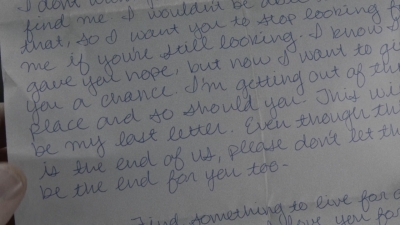 I don't want
find me I wouldn't be
that, so I want you to stop looking
me if you're still looking. I know I
gave you hope, but now I want to
you a chance. I'm getting out of
place and so should you. This
be my last letter. Even though
is the end of us, please don't let
be the end for you too-
Find something to live for
love you